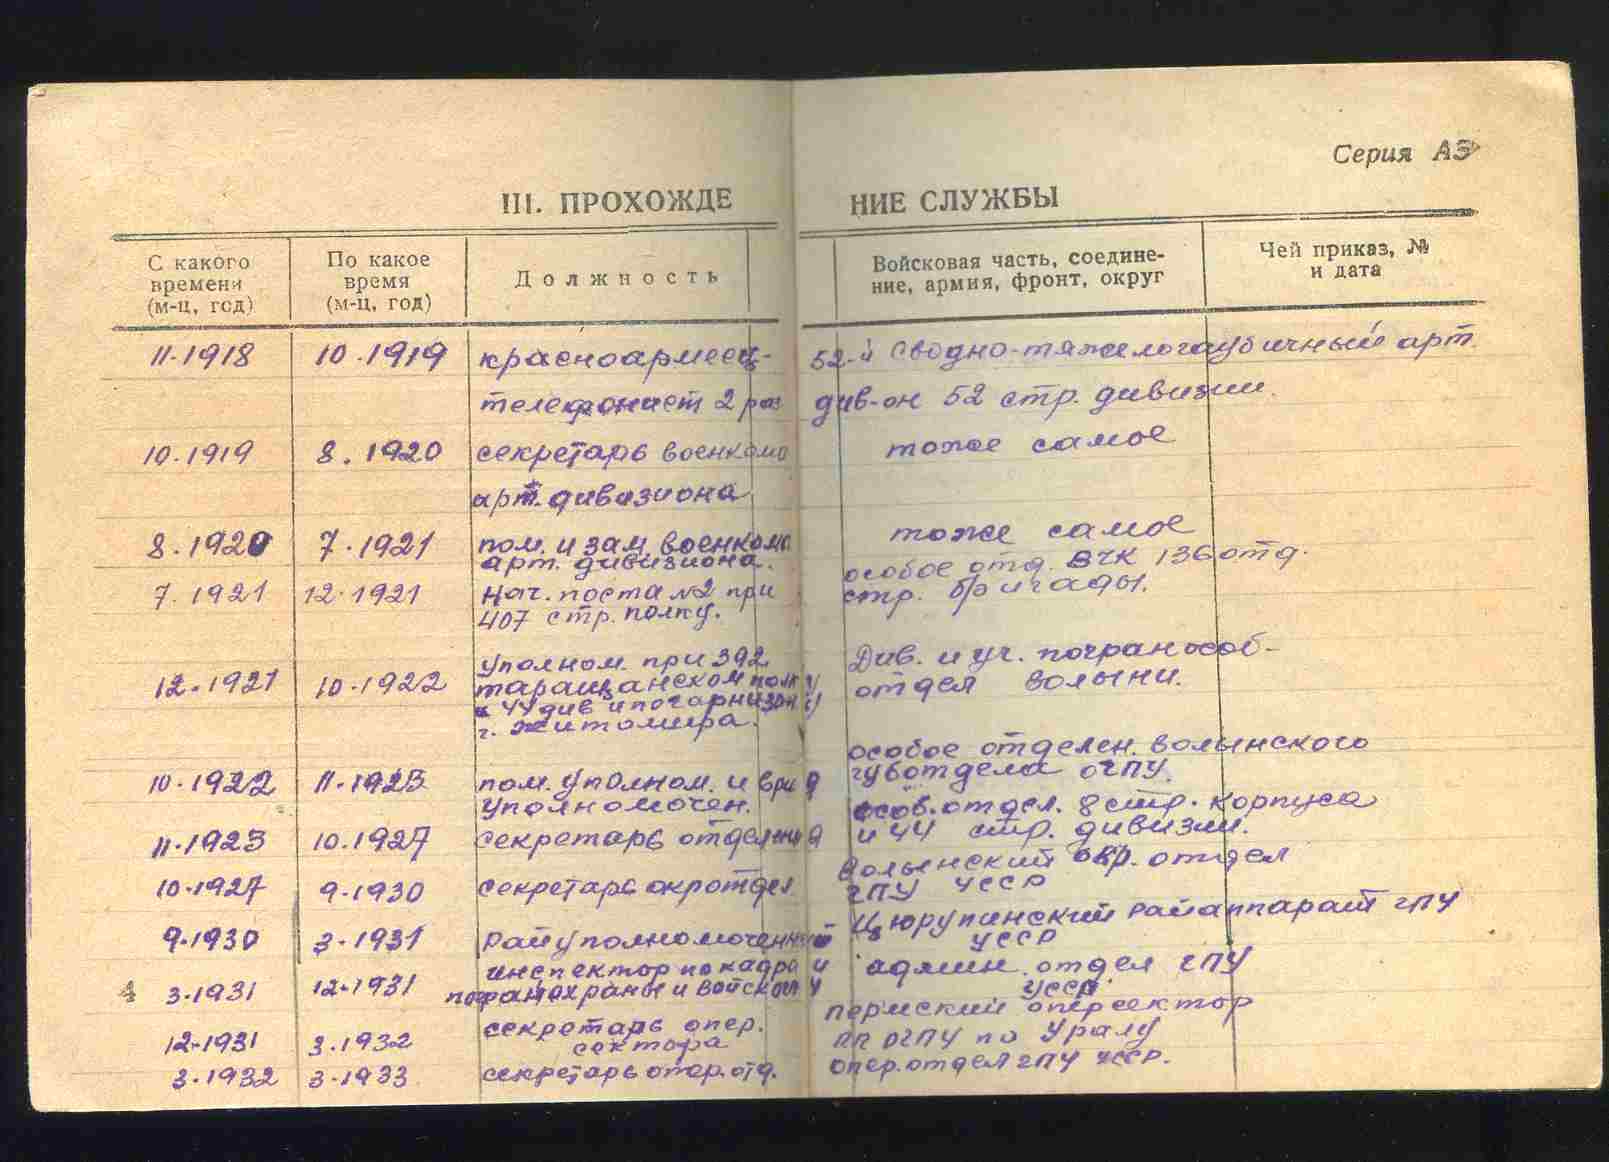 Серия АЭ
III. ПРОХОЖДЕНИЕ СЛУЖБЫ
С какого времени (м-ц, год)
По какое время (м-ц, год)
Должность
Войсковая часть, соедине-
ние, армия, фронт, округ
Чей приказ, №
и дата
11-1918 10.1919 красноармеец- 52-й Сводно-тяжелогаубичный арт.
телефонист 2 раз див-он 52 стр. дивизии.
10.1919 8.1920 секретарь военкома тоже самое
арт. дивизиона
8.1920 7.1921 пом. и зам. военкома тоже самое
арт. дивизиона.
особое отд. ВЧК 136 отд.
7.1921 12.1921 Нач. поста №2 при стр. бригады.
407 стр. полку.
Уполном. при 392 Див. и уч. погранособ-
12.1921 10.1922 таращанском полку отдел Волыни.
и 44 див и по гарнизону
г. Житомира.
особое отделен. Волынского
10.1922 11.1923 пом. уполном. и врид губотдела ОГПУ.
уполномочен. особ. отдел. 8 стр. корпуса
11.1923 10.1927 секретарь отделения и 44 стр. дивизии.
Волынский окр. отдел
10.1927 9.1930 секретарь окротдел ГПУ УССР
Цюрупинский райаппарат ГПУ
9.1930 3.1931 Райуполномоченный УССР
инспектор по кадрам админ. отдел ГПУ
4 3.1931 12.1931 погранохраны и войск ГПУ УССР
Пермский оперсектор
секретарь опер.
12.1931 3.1932 сектора ПП ОГПУ по Уралу
3.1932 3.1933 секретарь опер. отд. опер. отдел ГПУ УССР.